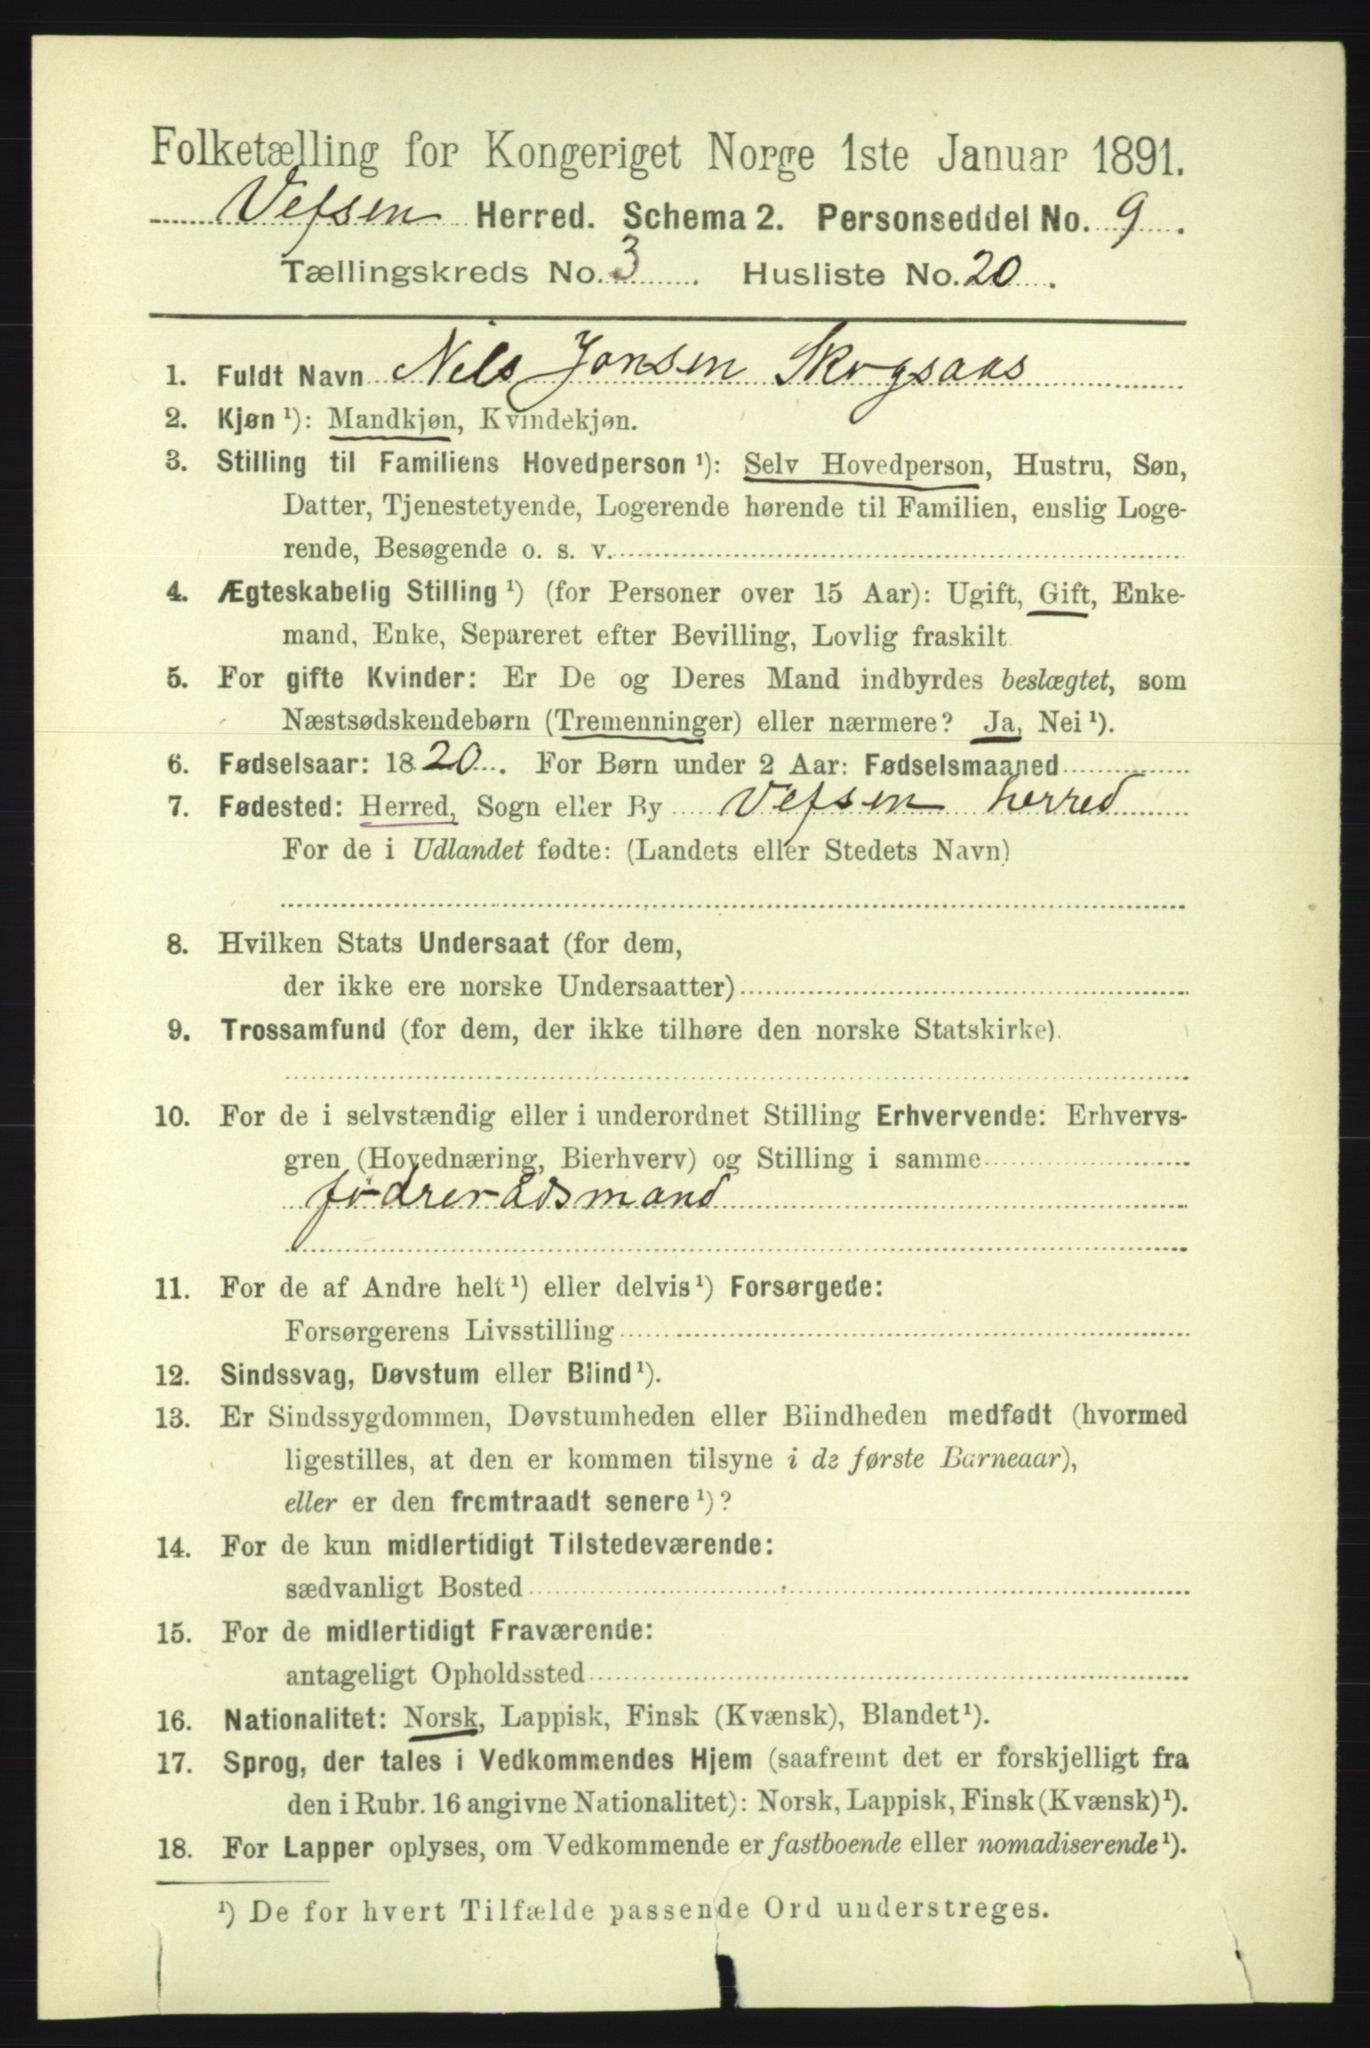 Folketælling for Kongeriget Norge 1ste Januar 1891.
Vefsen Herred. Schema 2. Personseddel No. 9.
Tællingskreds No. 3. Husliste No. 20.
1. Fuldt Navn Nils Jonsen Skogsaas
2. Kjøn ¹): Mandkjøn, Kvindekjøn.
3. Stilling til Familiens Hovedperson ¹): Selv Hovedperson, Hustru, Søn,
Datter, Tjenestetyende, Logerende hørende til Familien, enslig Loge-
rende, Besøgende o. s. v.
4. Ægteskabelig Stilling ¹) (for Personer over 15 Aar): Ugift, Gift, Enke-
mand, Enke, Separeret efter Bevilling, Lovlig fraskilt
5. For gifte Kvinder: Er De og Deres Mand indbyrdes beslægtet, som
Næstsødskendebørn (Tremenninger) eller nærmere? Ja, Nei ¹).
6. Fødselsaar: 1820. For Børn under 2 Aar: Fødselsmaaned
7. Fødested: Herred, Sogn eller By Vefsen herred
For de i Udlandet fødte: (Landets eller Stedets Navn)
8. Hvilken Stats Undersaat (for dem,
der ikke ere norske Undersaatter)
9. Trossamfund (for dem, der ikke tilhøre den norske Statskirke).
10. For de i selvstændig eller i underordnet Stilling Erhvervende: Erhvervs-
gren (Hovednæring, Bierhverv) og Stilling i samme
födrerådsmand
11. For de af Andre helt ¹) eller delvis ¹) Forsørgede:
Forsørgerens Livsstilling
12. Sindssvag, Døvstum eller Blind ¹).
13. Er Sindssygdommen, Døvstumheden eller Blindheden medfødt (hvormed
ligestilles, at den er kommen tilsyne i de første Barneaar),
eller er den fremtraadt senere ¹)?
14. For de kun midlertidigt Tilstedeværende:
sædvanligt Bosted
15. For de midlertidigt Fraværende:
antageligt Opholdssted
16. Nationalitet: Norsk, Lappisk, Finsk (Kvænsk), Blandet ¹).
17. Sprog, der tales i Vedkommendes Hjem (saafremt det er forskjelligt fra
den i Rubr. 16 angivne Nationalitet): Norsk, Lappisk, Finsk (Kvænsk) ¹).
18. For Lapper oplyses, om Vedkommende er fastboende eller nomadiserende ¹).
¹) De for hvert Tilfælde passende Ord understreges.